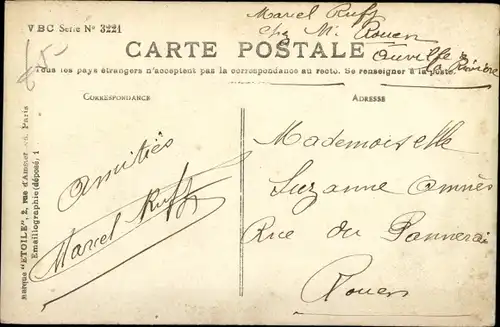 VBC Serie Nº 3221
Marcel Ruff
chez M. Rouen
Ouville
la Rivière
CARTE POSTALE
Tous les pays étrangers n'acceptent pas la correspondance au recto. Se renseigner à la poste.
CORRESPONDANCE
ADRESSE
Amitiés
Marcel Ruff
Mademoiselle
Suzanne
Rue du
Rouen
Marque "ETOILE", 2, rue d'Amboise, Paris
Emaillographie (déposé)